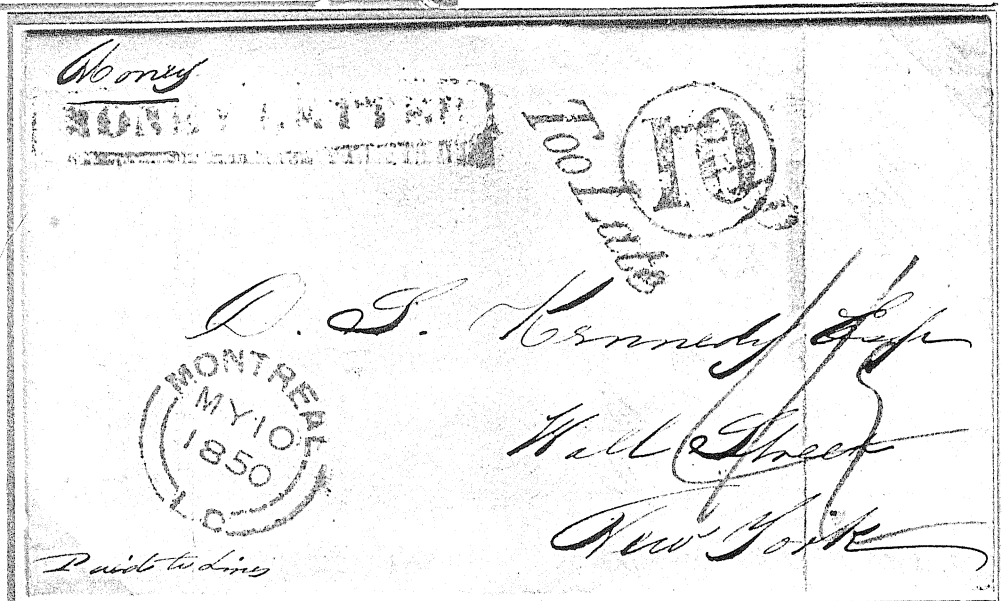 Money
MONEY LETTER
Too Late
10
D. S. Kennedy Esqr
Wall Street
New York
MONTREAL
MY 10
1850
L.C
Paid to Lines